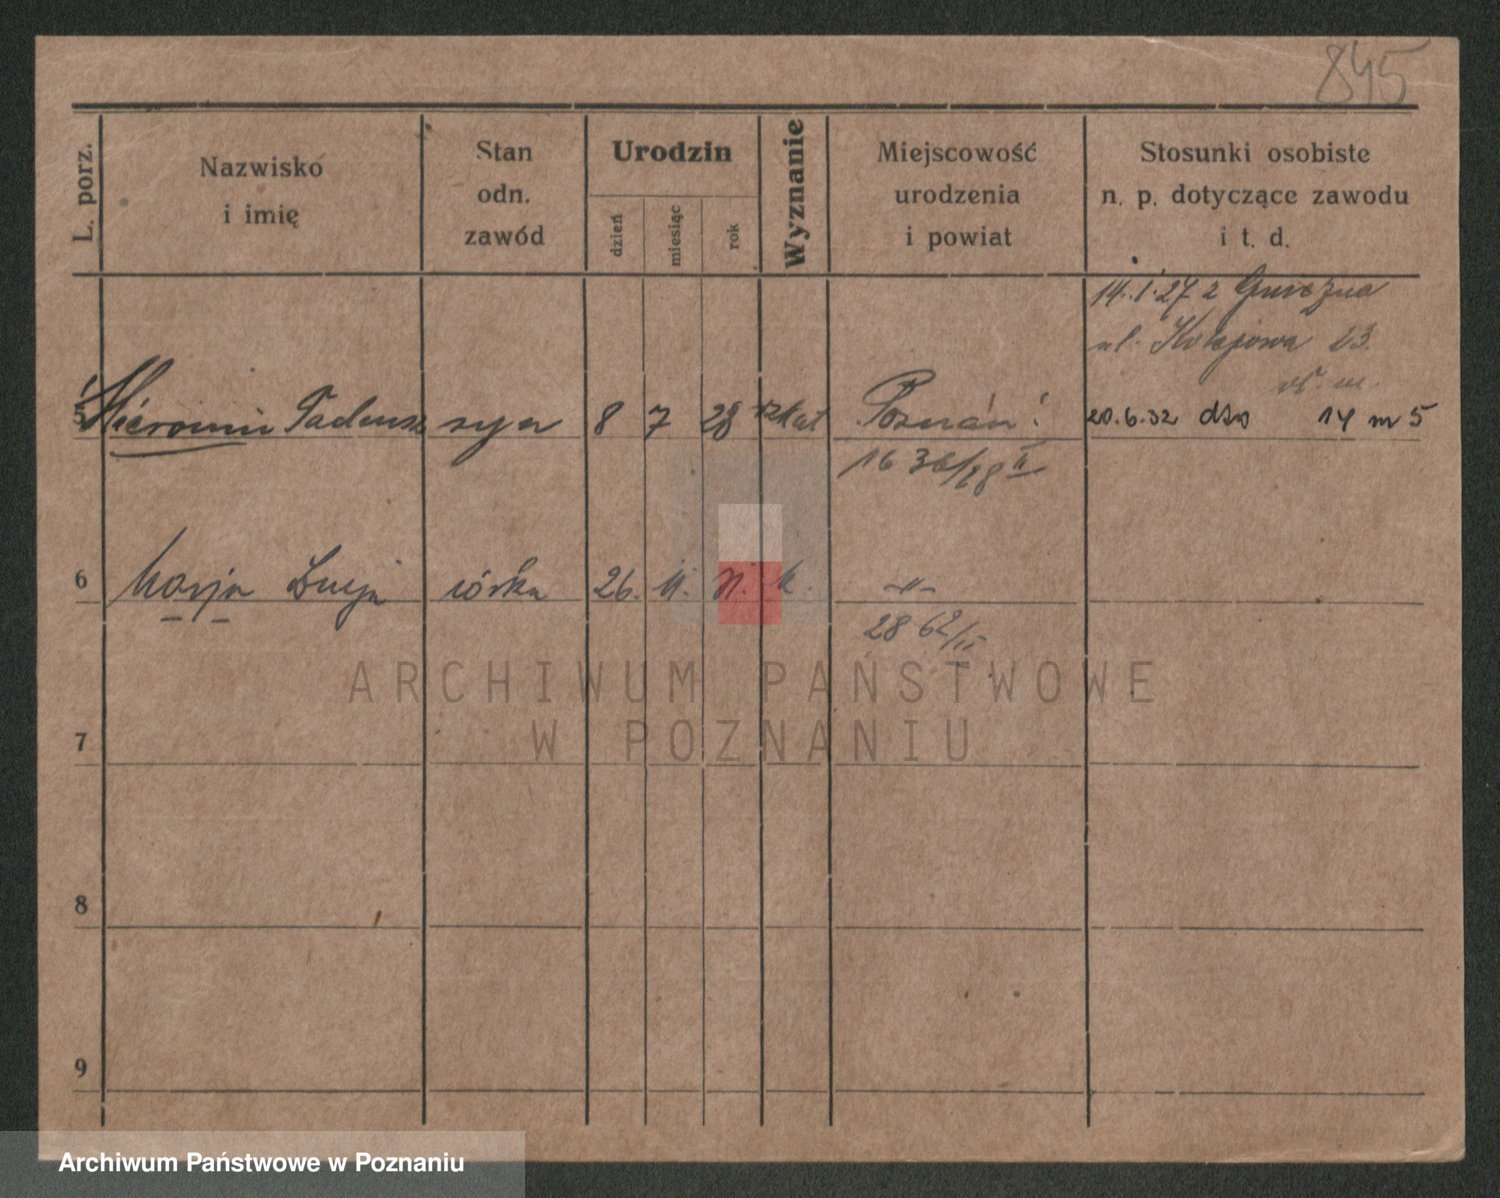 845
L. porz.
Nazwisko
i imię
Stan
odn.
zawód
Urodzin
dzień
miesiąc
rok
Wyznanie
Miejscowość
urodzenia
i powiat
Stosunki osobiste
n. p. dotyczące zawodu
i t. d.
14.1.27 z Gniezna
ul. Kolejowa 23.
5 Hieronim Tadeusz syn 8 7 28 rzkat Poznań 20.6.32 dto 14 m 5
16 36/28 II
6 Marja Łucja córka 26. 11. k. -"-
28 62/II
7
8
9
ARCHIWUM PAŃSTWOWE
W POZNANIU
Archiwum Państwowe w Poznaniu